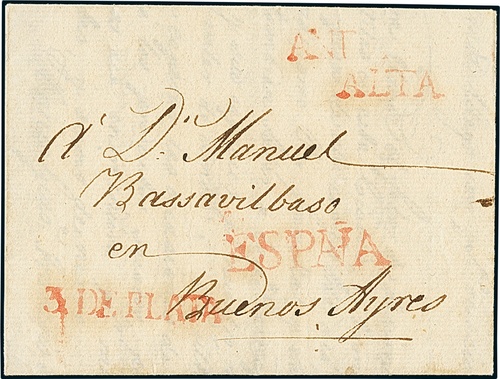 ANT
ALTA
A Dn. Manuel
Bassavilbaso
ESPÑA
en
3. DE PLATA
Buenos Ayres